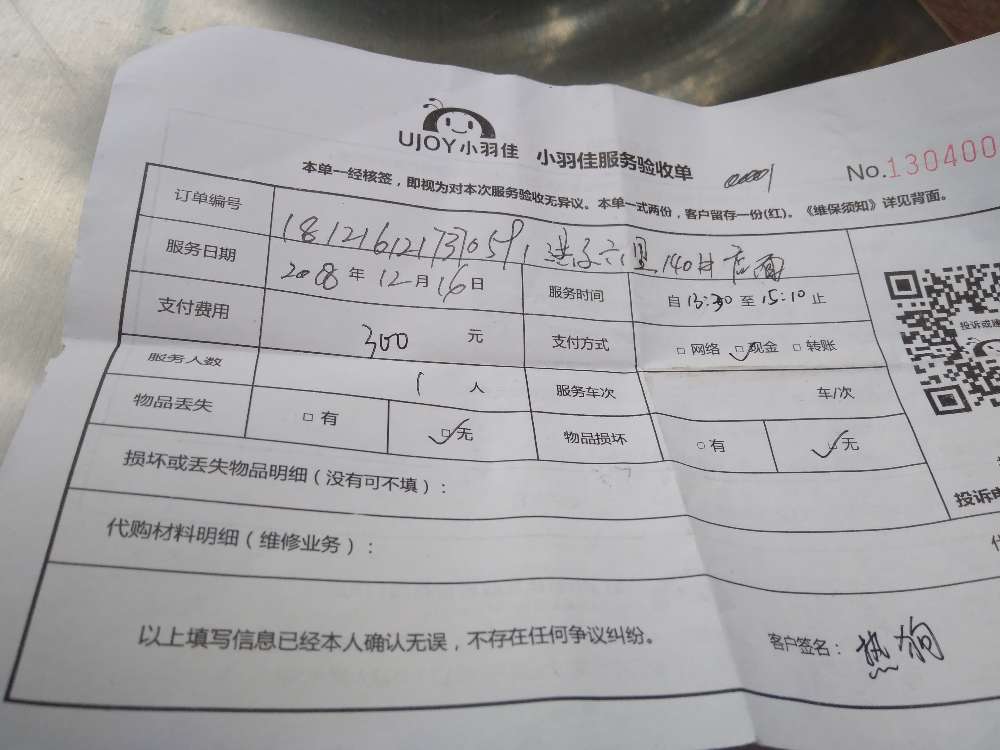 UJOY小羽佳 小羽佳服务验收单 0001 No.130400
本单一经核签，即视为对本次服务验收无异议。本单一式两份，客户留存一份(红)。《维保须知》详见背面。
订单编号 181216121737059
服务日期 2008年12月16日 服务时间 自13:30至15:10止
支付费用 300 元 支付方式 □网络 □现金 □转账
服务人数 1 人 服务车次 车/次
物品丢失 □有 □无 物品损坏 ○有 □无
投诉或建
损坏或丢失物品明细（没有可不填）：
投诉电
代购材料明细（维修业务）：
以上填写信息已经本人确认无误，不存在任何争议纠纷。
客户签名：热狗